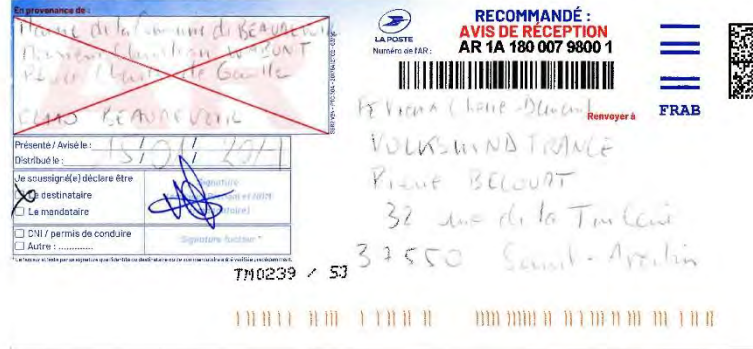 En provenance de :
Mairie de la Commune de BEAUREVOIR
Monsieur
Place Charles de Gaulle
BEAUREVOIR
Présenté / Avisé le : 15/01/
Distribué le :
Je soussigné(e) déclare être
Le destinataire
Le mandataire
CNI / permis de conduire
Autre : ............
Signature
Signature facteur *
TM0239 / 53
LA POSTE
Numéro de l'AR :
RECOMMANDÉ :
AVIS DE RÉCEPTION
AR 1A 180 007 9800 1
Renvoyer à
FRAB
VOLKSWIND FRANCE
Pierre BECOURT
32 rue de la
37550 Saint-Avertin